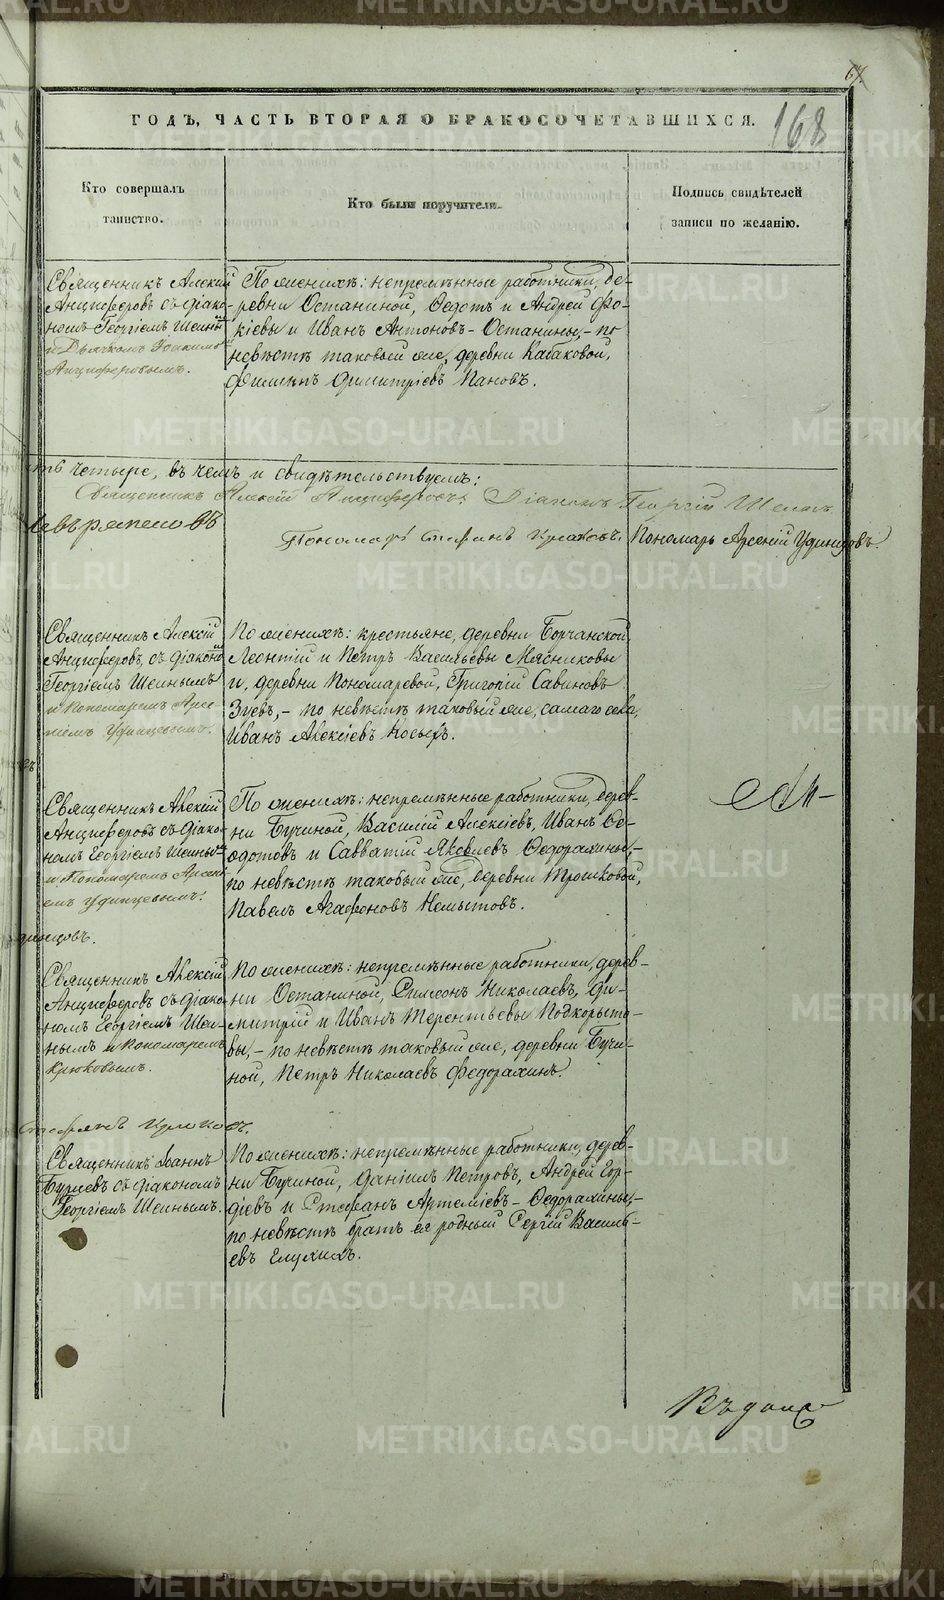 67.
168
ГОДЪ, ЧАСТЬ ВТОРАЯ О БРАКОСОЧЕТАВШИХСЯ.
Кто совершалъ
таинство.
Кто были поручители.
Подпись свидѣтелей
записи по желанію.
Священникъ Алексій
Анциферовъ съ діако-
номъ Георгіемъ Шеинымъ
и Дьячкомъ Іоакимомъ
Анциферовымъ.
По женихѣ: непремѣнные работники, де-
ревни Останиной, Ѳедотъ и Андрей Фо-
кіевы и Иванъ Антоновъ - Останины, - по
невѣстѣ таковый же, деревни Кабаковой,
Филипъ Димитріевъ Пановъ.
четыре, въ чемъ и свидѣтельствуемъ:
Священникъ Алексій Анциферовъ. Діаконъ Георгій Шеинъ
Пономарь Стефанъ Крюковъ. Пономарь Арсеній Удинцовъ.
Священникъ Алексій
Анциферовъ, съ діакономъ
Георгіемъ Шеинымъ
и Пономаремъ Арсе-
ніемъ Удинцовымъ.
По женихѣ: крестьяне, деревни Борчанской,
Леонтій и Петръ Васильевы Мясниковы
и, деревни Пономаревой, Григорій Савиновъ
Зуевъ, - по невѣстѣ таковый же, самаго села,
Иванъ Алексіевъ Носыръ.
Священникъ Алексій
Анциферовъ съ діако-
номъ Георгіемъ Шеины-
и Пономаремъ Арсені-
емъ Удинцевымъ.
По женихѣ: непремѣнные работники, дерев-
ни Бучиной, Василій Алексіевъ, Иванъ Ѳе-
одотовъ и Савватій Яковлевъ Ѳедорахины, -
по невѣстѣ таковый же, деревни Трошковой,
Павелъ Агафоновъ Немытовъ.
динцовъ.
Священникъ Алексій
Анциферовъ съ діако-
номъ Георгіемъ Шеи-
нымъ и Пономаремъ
Крюковымъ.
По женихѣ: непремѣнные работники, дерев-
ни Останиной, Симеонъ Николаевъ, Ди-
митрій и Иванъ Терентьевы Подкорыто-
вы, - по невѣстѣ таковый же, деревни Бучи-
ной, Петръ Николаевъ Федорахинъ.
Стефанъ Крюковъ.
Священникъ Іоаннъ
Бурцевъ съ діакономъ
Георгіемъ Шеинымъ.
По женихѣ: непремѣнные работники, дерев-
ни Бучиной, Даніилъ Петровъ, Андрей Гор-
діевъ и Стефанъ Артеміевъ - Ѳедорахины, -
по невѣстѣ братъ ея родный Сергій Василь-
евъ Елухихъ.
METRIKI.GASO-URAL.RU